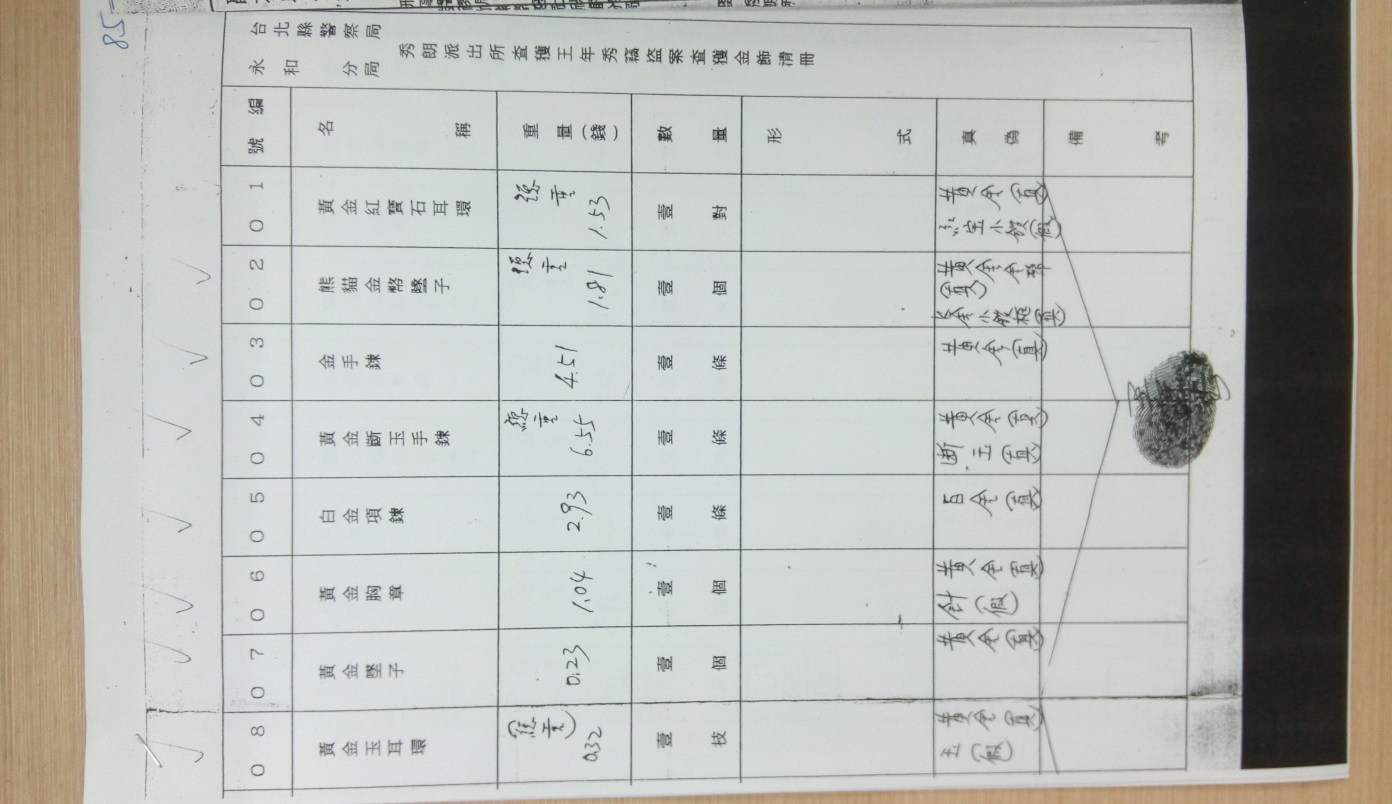 85-
台北縣警察局
永和分局
秀朗派出所查獲王年秀竊盜案查獲金飾清冊
編號 名稱 重量(錢) 數量 形式 真偽 備考
001 黃金紅寶石耳環 總重 1.53 壹對 黃金(真)
(假)
002 熊貓金幣墜子 總重 1.81 壹個 黃金金幣
(真)
(真)
003 金手鍊 4.51 壹條 黃金(真)
004 黃金斷玉手鍊 總重 6.55 壹條 黃金(真)
斷玉(真)
005 白金項鍊 2.93 壹條 白金(真)
006 黃金胸章 1.04 壹個 黃金(真)
針(假)
007 黃金墜子 0.23 壹個 黃金(真)
008 黃金玉耳環 (總重) 0.32 壹枝 黃金(真)
玉(假)